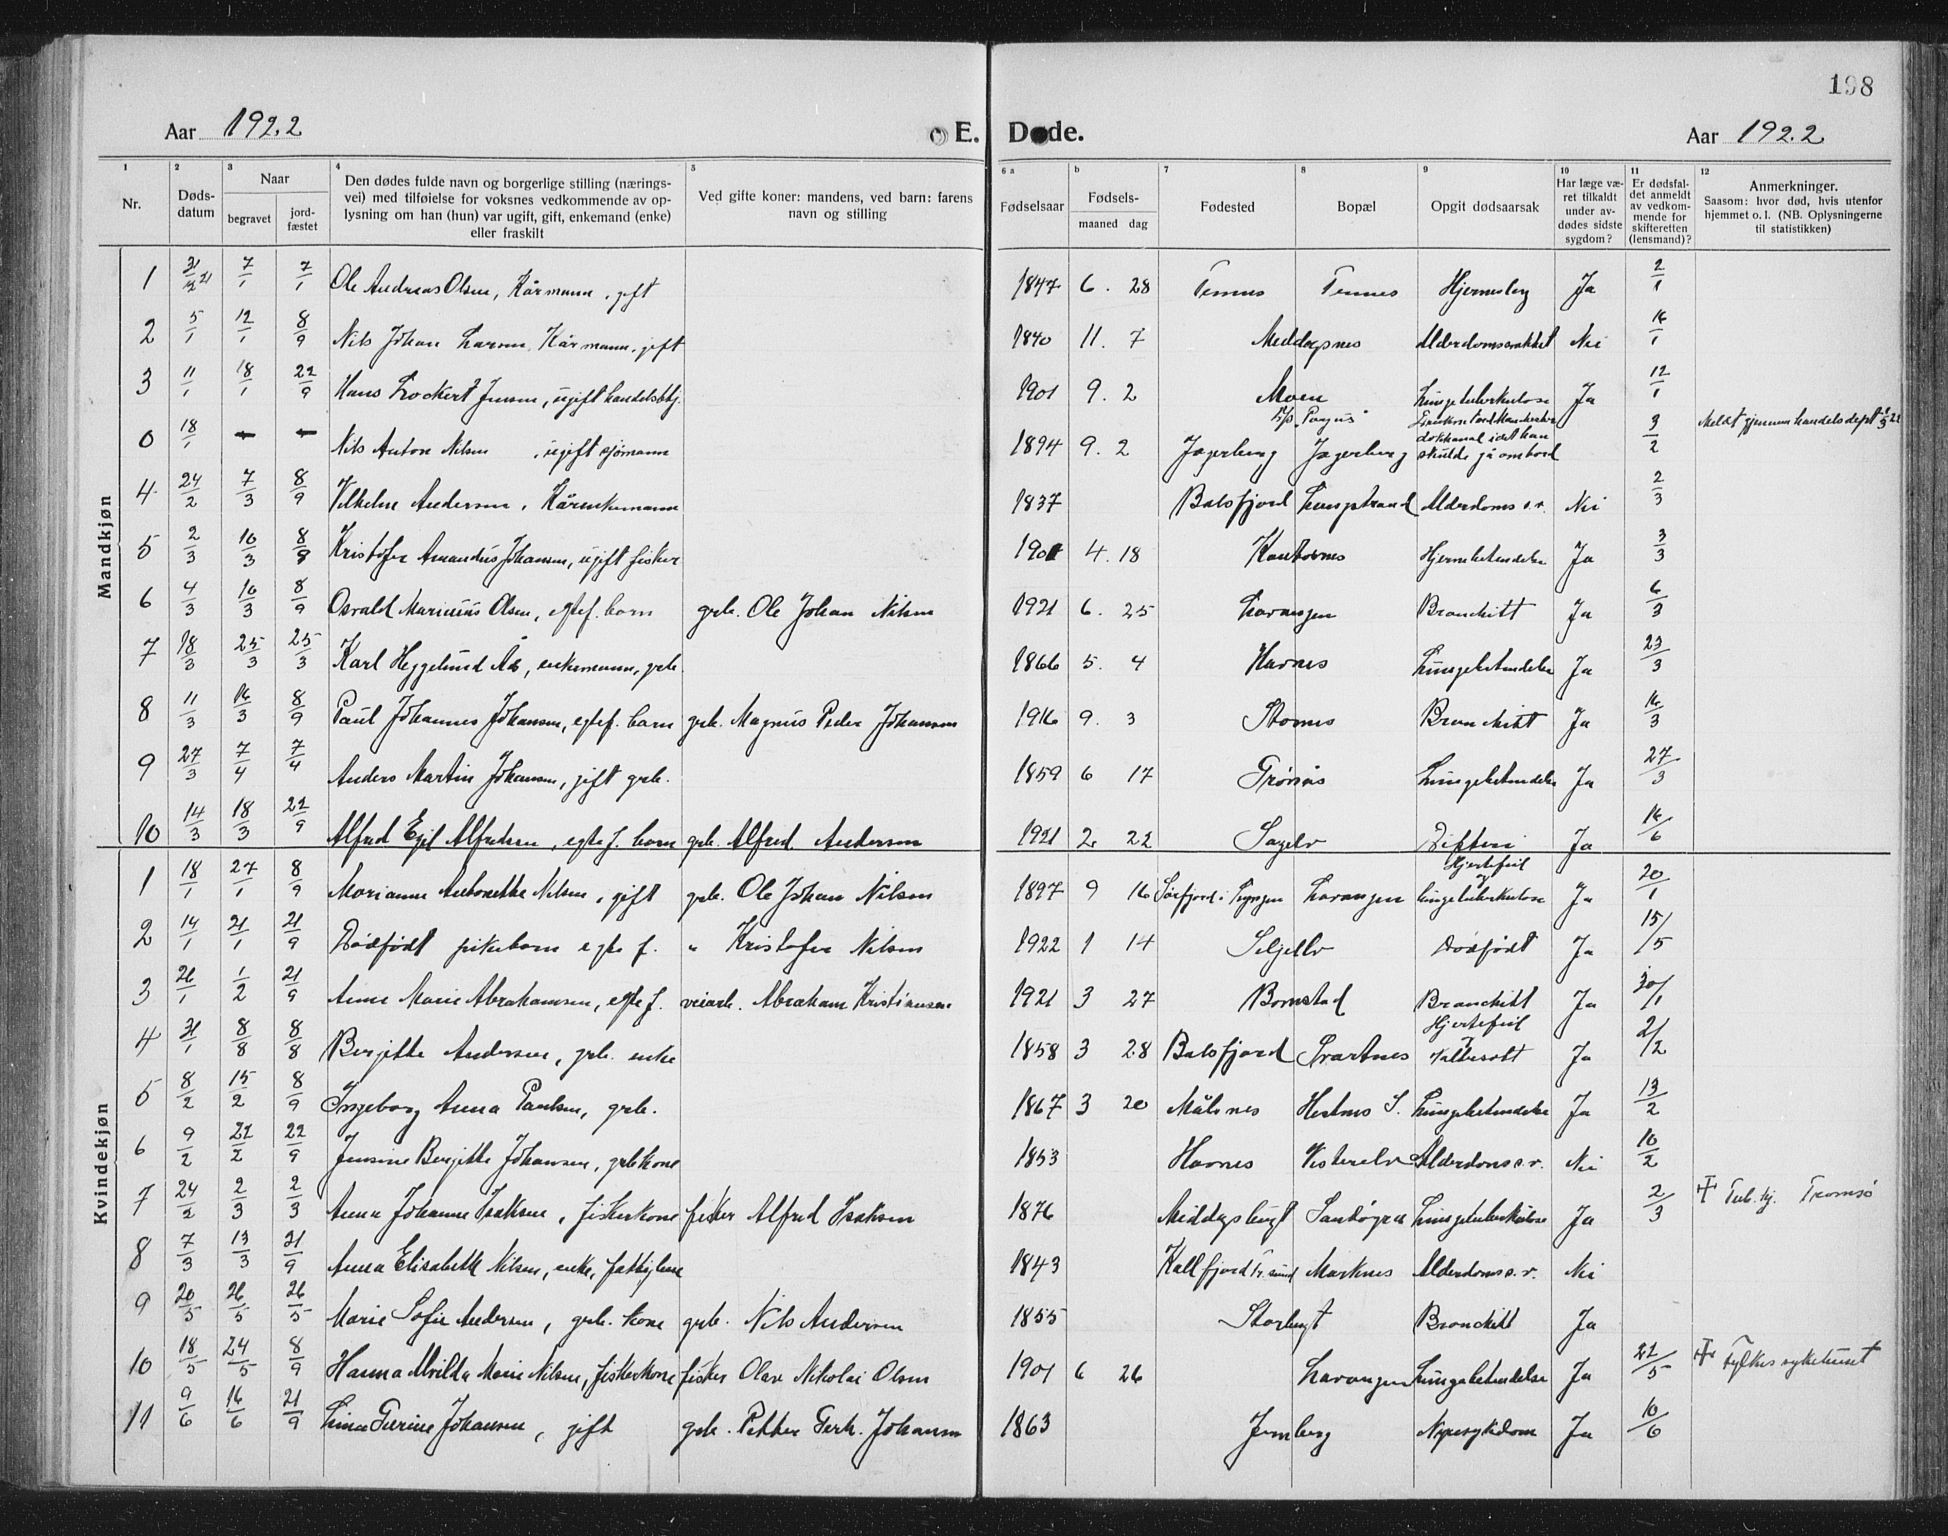 198
Aar 1922
E. Døde.
Aar 1922
1 2 3 4 5 6 a b 7 8 9 10 11 12
Nr.
Døds-
datum
Naar
begravet
jord-
fæstet
Den dødes fulde navn og borgerlige stilling (nærings-
vei) med tilføielse for voksnes vedkommende av op-
lysning om han (hun) var ugift, gift, enkemand (enke)
eller fraskilt
Ved gifte koner: mandens, ved barn: farens
navn og stilling
Fødselsaar
Fødsels-
maaned dag
Fødested
Bopæl
Opgit dødsaarsak
Har læge væ-
ret tilkaldt
under av-
dødes sidste
sygdom?
Er dødsfal-
det anmeldt
av vedkom-
mende for
skifteretten
(lensmand)?
Anmerkninger.
Saasom: hvor død, hvis utenfor
hjemmet o. l. (NB. Oplysningerne
til statistikken)
Mandkjøn
1 31/12 21 7/1 7/1 Ole Andreas Olsen, Kårmann, gift 1847 6. 28 Tennes Tennes Ja 2/1
2 5/1 12/1 8/9 Nils Johan Larsen, Kårmann, gift 1840 11. 7 Meddagsnes Nei 16/1
3 11/1 18/1 22/9 Hans Lockert Jensen, ugift handelsbtj. 1901 9. 2 Moen Lungetuberkulose Ja 12/1
0 18/1 - - Nils Anton Nilsen, ugift sjømann 1894 9. 2 Jagerberg Jagerberg skulde gå ombord 3/2 Meldt gjennem handelsdept
4 24/2 7/3 8/9 Vilhelm Andersen, Kårenkemann 1837 Balsfjord Alderdoms s.v. Nei 2/3
5 2/3 10/3 8/9 Kristofer Amandus Johansen, ugift fisker 4. 18 Kantornes Hjernebetendelse Ja 3/3
6 4/3 10/3 8/9 Osvald Marinius Olsen, egtef. barn grb. Ole Johan Nilsen 1921 6. 25 Lavangen Bronchitt Ja 6/3
7 18/3 25/3 25/3 Karl Heggelund Ås, enkemann, grb. 1866 5. 4 Havnes Lungebetendelse Ja 23/3
8 11/3 16/3 8/9 Paul Johannes Johansen, egtef. barn grb. Magnus Peder Johansen 1916 9. 3 Stornes Bronchitt Ja 16/3
9 27/3 7/4 7/4 Anders Martin Johansen, gift grb. 1859 6 17 Lungebetendelse Ja 27/3
10 14/3 18/3 22/9 Alfred Egil Alfredsen, egte f. barn grb. Alfred Andersen 1921 2 22 Sagelv Difteri Ja 16/6
Kvindekjøn
1 18/1 27/1 8/9 Marianne Antonette Nilsen, gift grb. Ole Johan Nilsen 1897 9 16 Sørfjord i Lyngen Lavangen Hjertefeil og lungetuberkulose Ja 20/1
2 14/1 21/1 21/9 Dødfødt pikebarn egte f. " Kristofer Nilsen 1922 1 14 Seljelv Dødfødt Ja 15/5
3 26/1 1/2 21/9 Anne Marie Abrahamsen, egte f. veiarb. Abraham Kristiansen 1921 3 27 Bomstad Bronchitt Ja 30/1
4 31/1 8/8 8/8 Bergitte Andersen, grb. enke 1858 3 28 Balsfjord Svartnes Hjertefeil Ja 2/2
5 8/2 15/2 8/9 Ingeborg Anna Paulsen, grb. 1867 3 20 Målsnes Hestnes S. Lungebetendelse Ja 13/2
6 9/2 22/2 22/9 Jensine Bergitte Johansen, grb. kone 1853 Havnes Vesterelv Alderdoms s.v. Nei 10/2
7 24/2 2/3 2/3 Anna Johanne Isaksen, fiskerkone fisker Alfred Isaksen 1876 Middagsbugt Sandøyra Lungetuberkulose Ja 2/3 Tub. hj. Tromsø
8 7/3 13/3 21/9 Anna Elisabeth Nilsen, enke, fattiglem 1843 Kallfjord Tr. sund Markenes Alderdoms s.v. Nei
9 20/5 26/5 26/5 Marie Sofie Andersen, grb. kone grb. Nils Andersen 1855 Storbugt Bronchitt Ja
10 18/5 24/5 8/9 Hanna Alvilda Marie Nilsen, fiskerkone fisker Olav Nikolai Olsen 1901 6 26 Lavangen Lungebetendelse Ja 22/5 Fylkes sykehuset
11 9/6 16/6 21/9 Johansen, gift grb. Petter Gerh. Johansen 1863 Jernberg Nyresykdom Ja 10/6